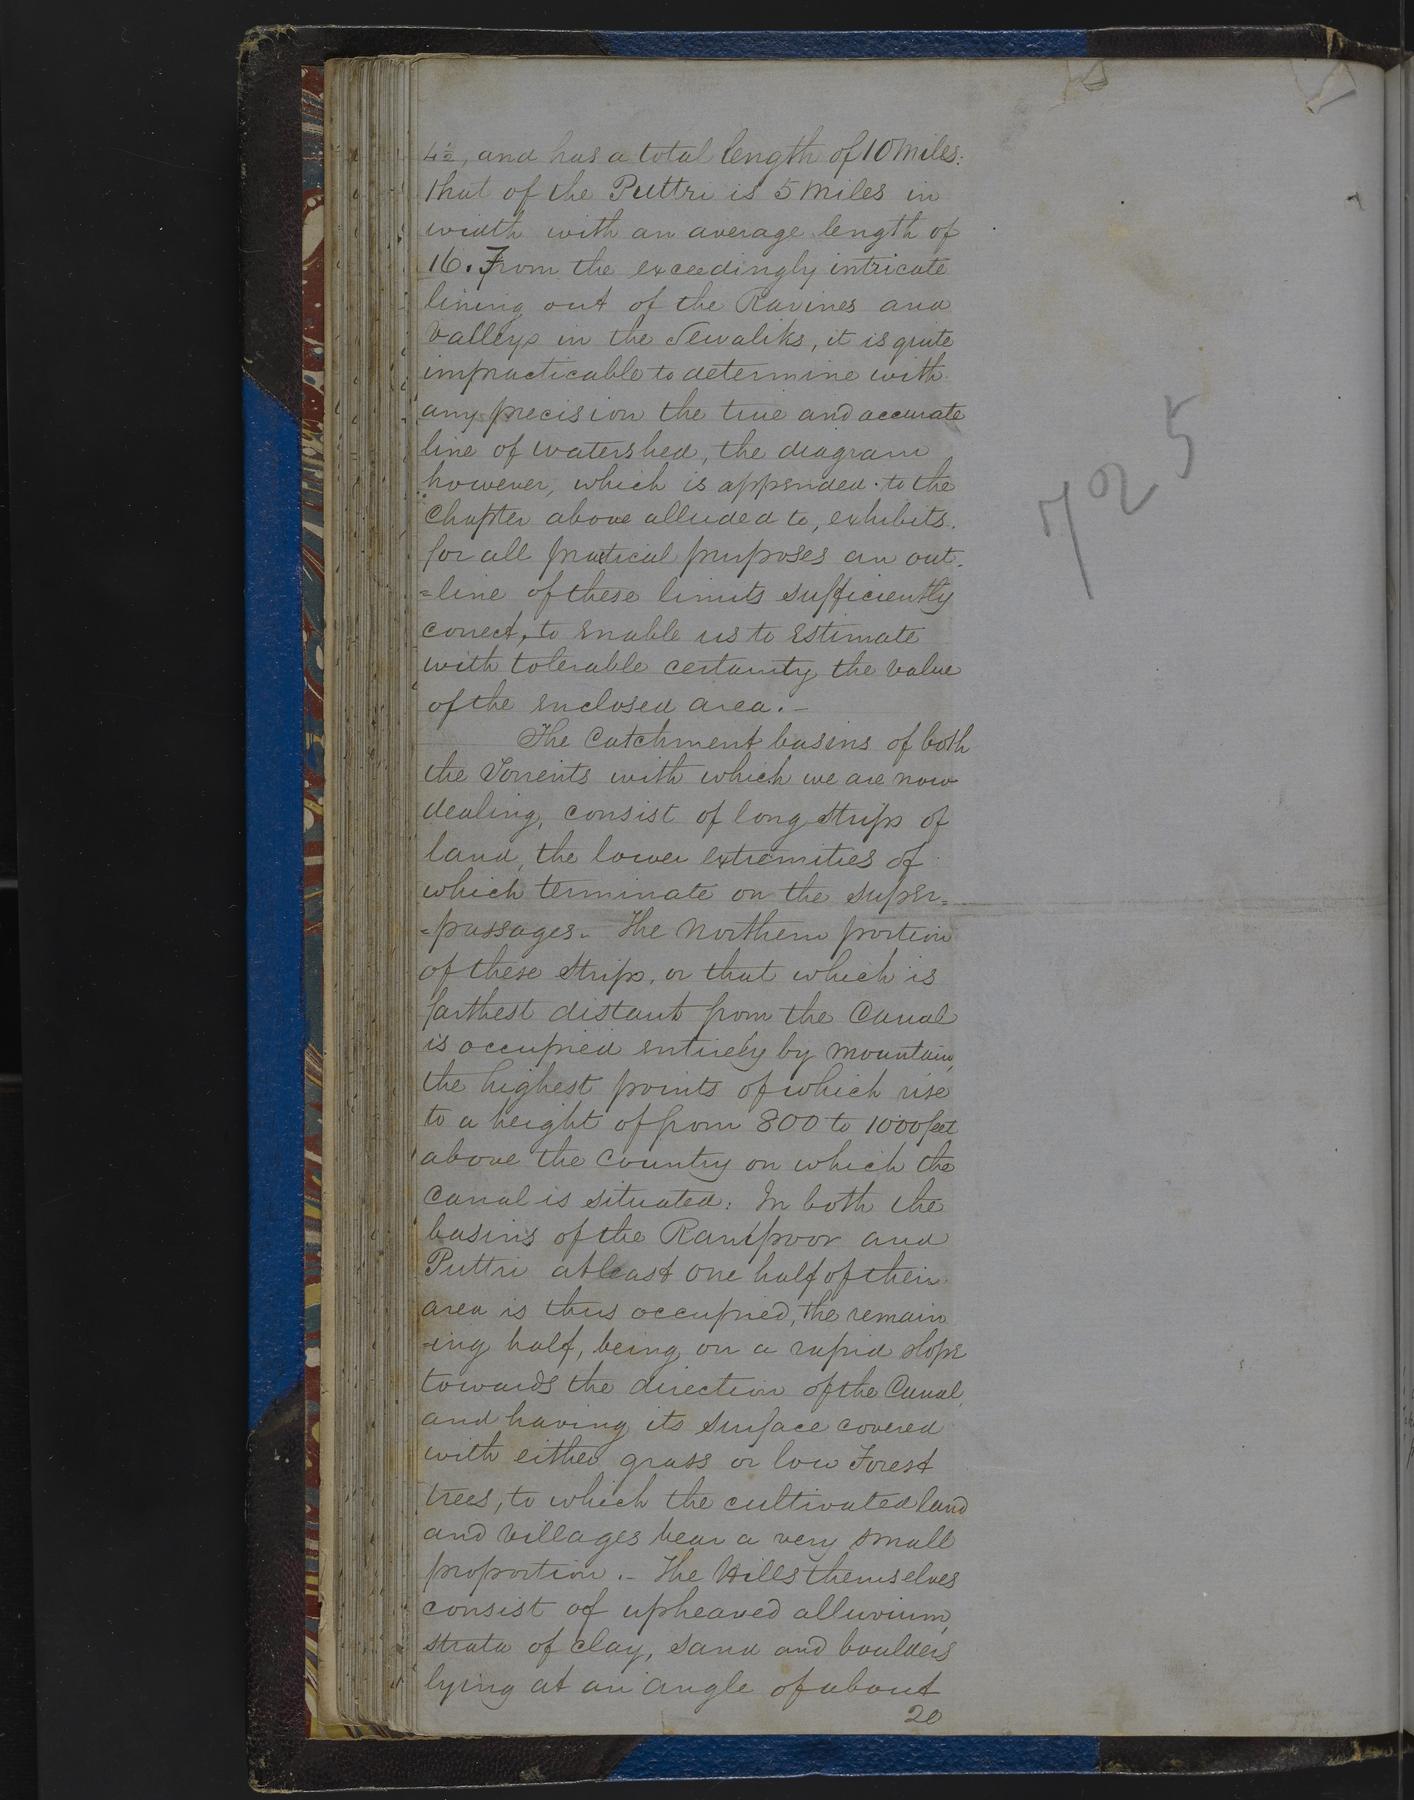 4½, and has a total length of 10 Miles:
that of the Puttri is 5 Miles in
width with an average length of
16. From the exceedingly intricate
lining out of the Ravines and
Valleys in the Sewaliks, it is quite
impracticable to determine with
any precision the true and accurate
line of watershed, the diagram
however, which is appended to the
Chapter above alluded to, exhibits.
for all practical purposes an out-
=line of these limits sufficiently
correct, to enable us to estimate
with tolerable certainty the value
of the enclosed area.-
The Catchment basins of both
the Torrents with which we are now
dealing, consist of long strips of
land, the lower extremities of
which terminate on the super=
=passages. The Northern portion
of these strips, or that which is
farthest distant from the Canal
is occupied entirely by Mountain,
the highest points of which rise
to a height of from 800 to 1000 feet
above the Country on which the
Canal is situated: In both the
basins of the Ranipoor and
Puttri at least one half of their
area is thus occupied, the remain
-ing half, being on a rapid slope
towards the direction of the Canal,
and having its surface covered
with either grass or low Forest
trees, to which the cultivated land
and Villages bear a very small
proportion.- The Hills themselves
consist of upheaved alluvium,
strata of clay, sand and boulders
lying at an angle of about
20
725